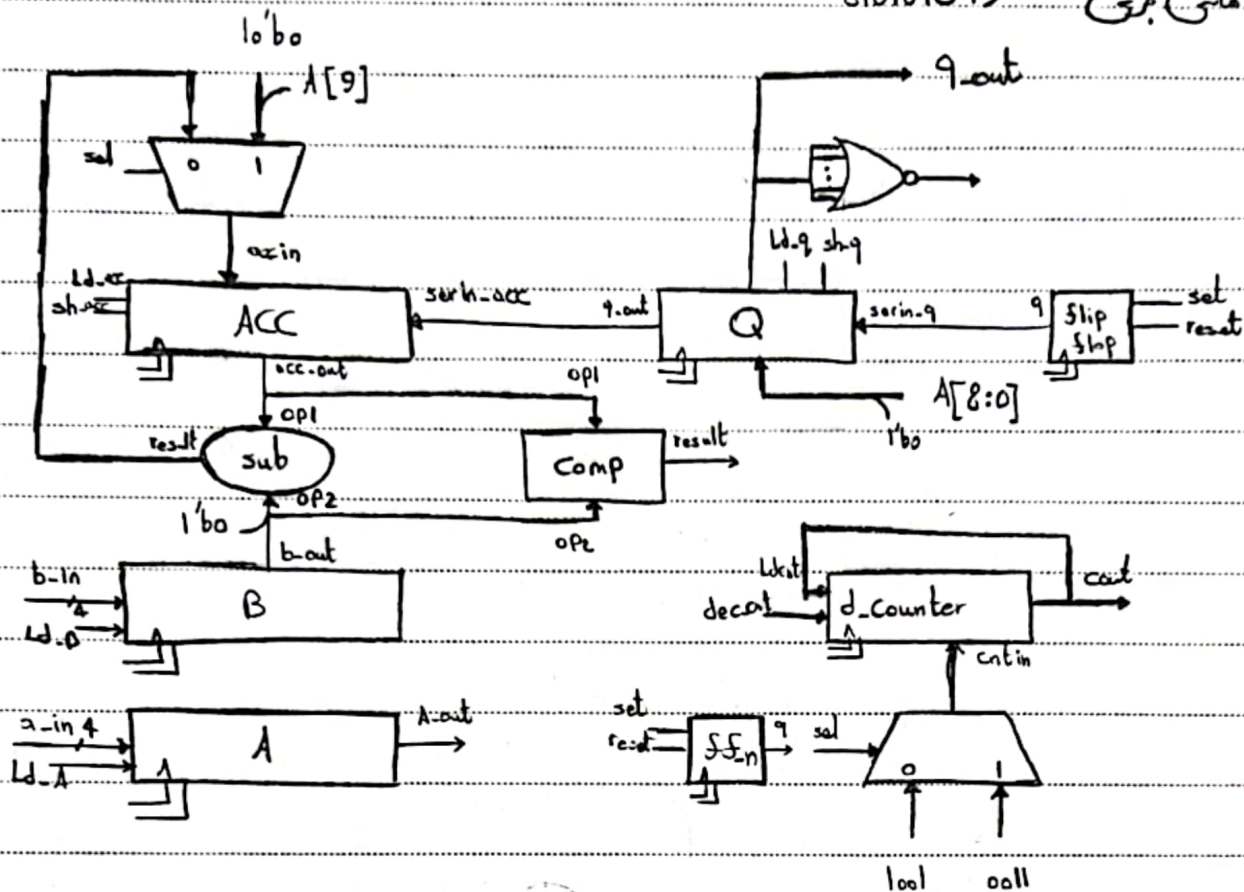 10'b0
A[9]
q_out
sel
0 1
axin
Ld_q sh_q
ACC
serin_acc
q_out
Q
serin_q
q
flip
flop
set
reset
acc_out
op1
op1
A[8:0]
1'b0
result
sub
comp
result
op2
1'b0
op2
b_out
b_in
4
B
cout
d_counter
cntin
a_in 4
A
A_out
Ld_A
set
reset
ff_n
q
sel
0 1
1001 0011